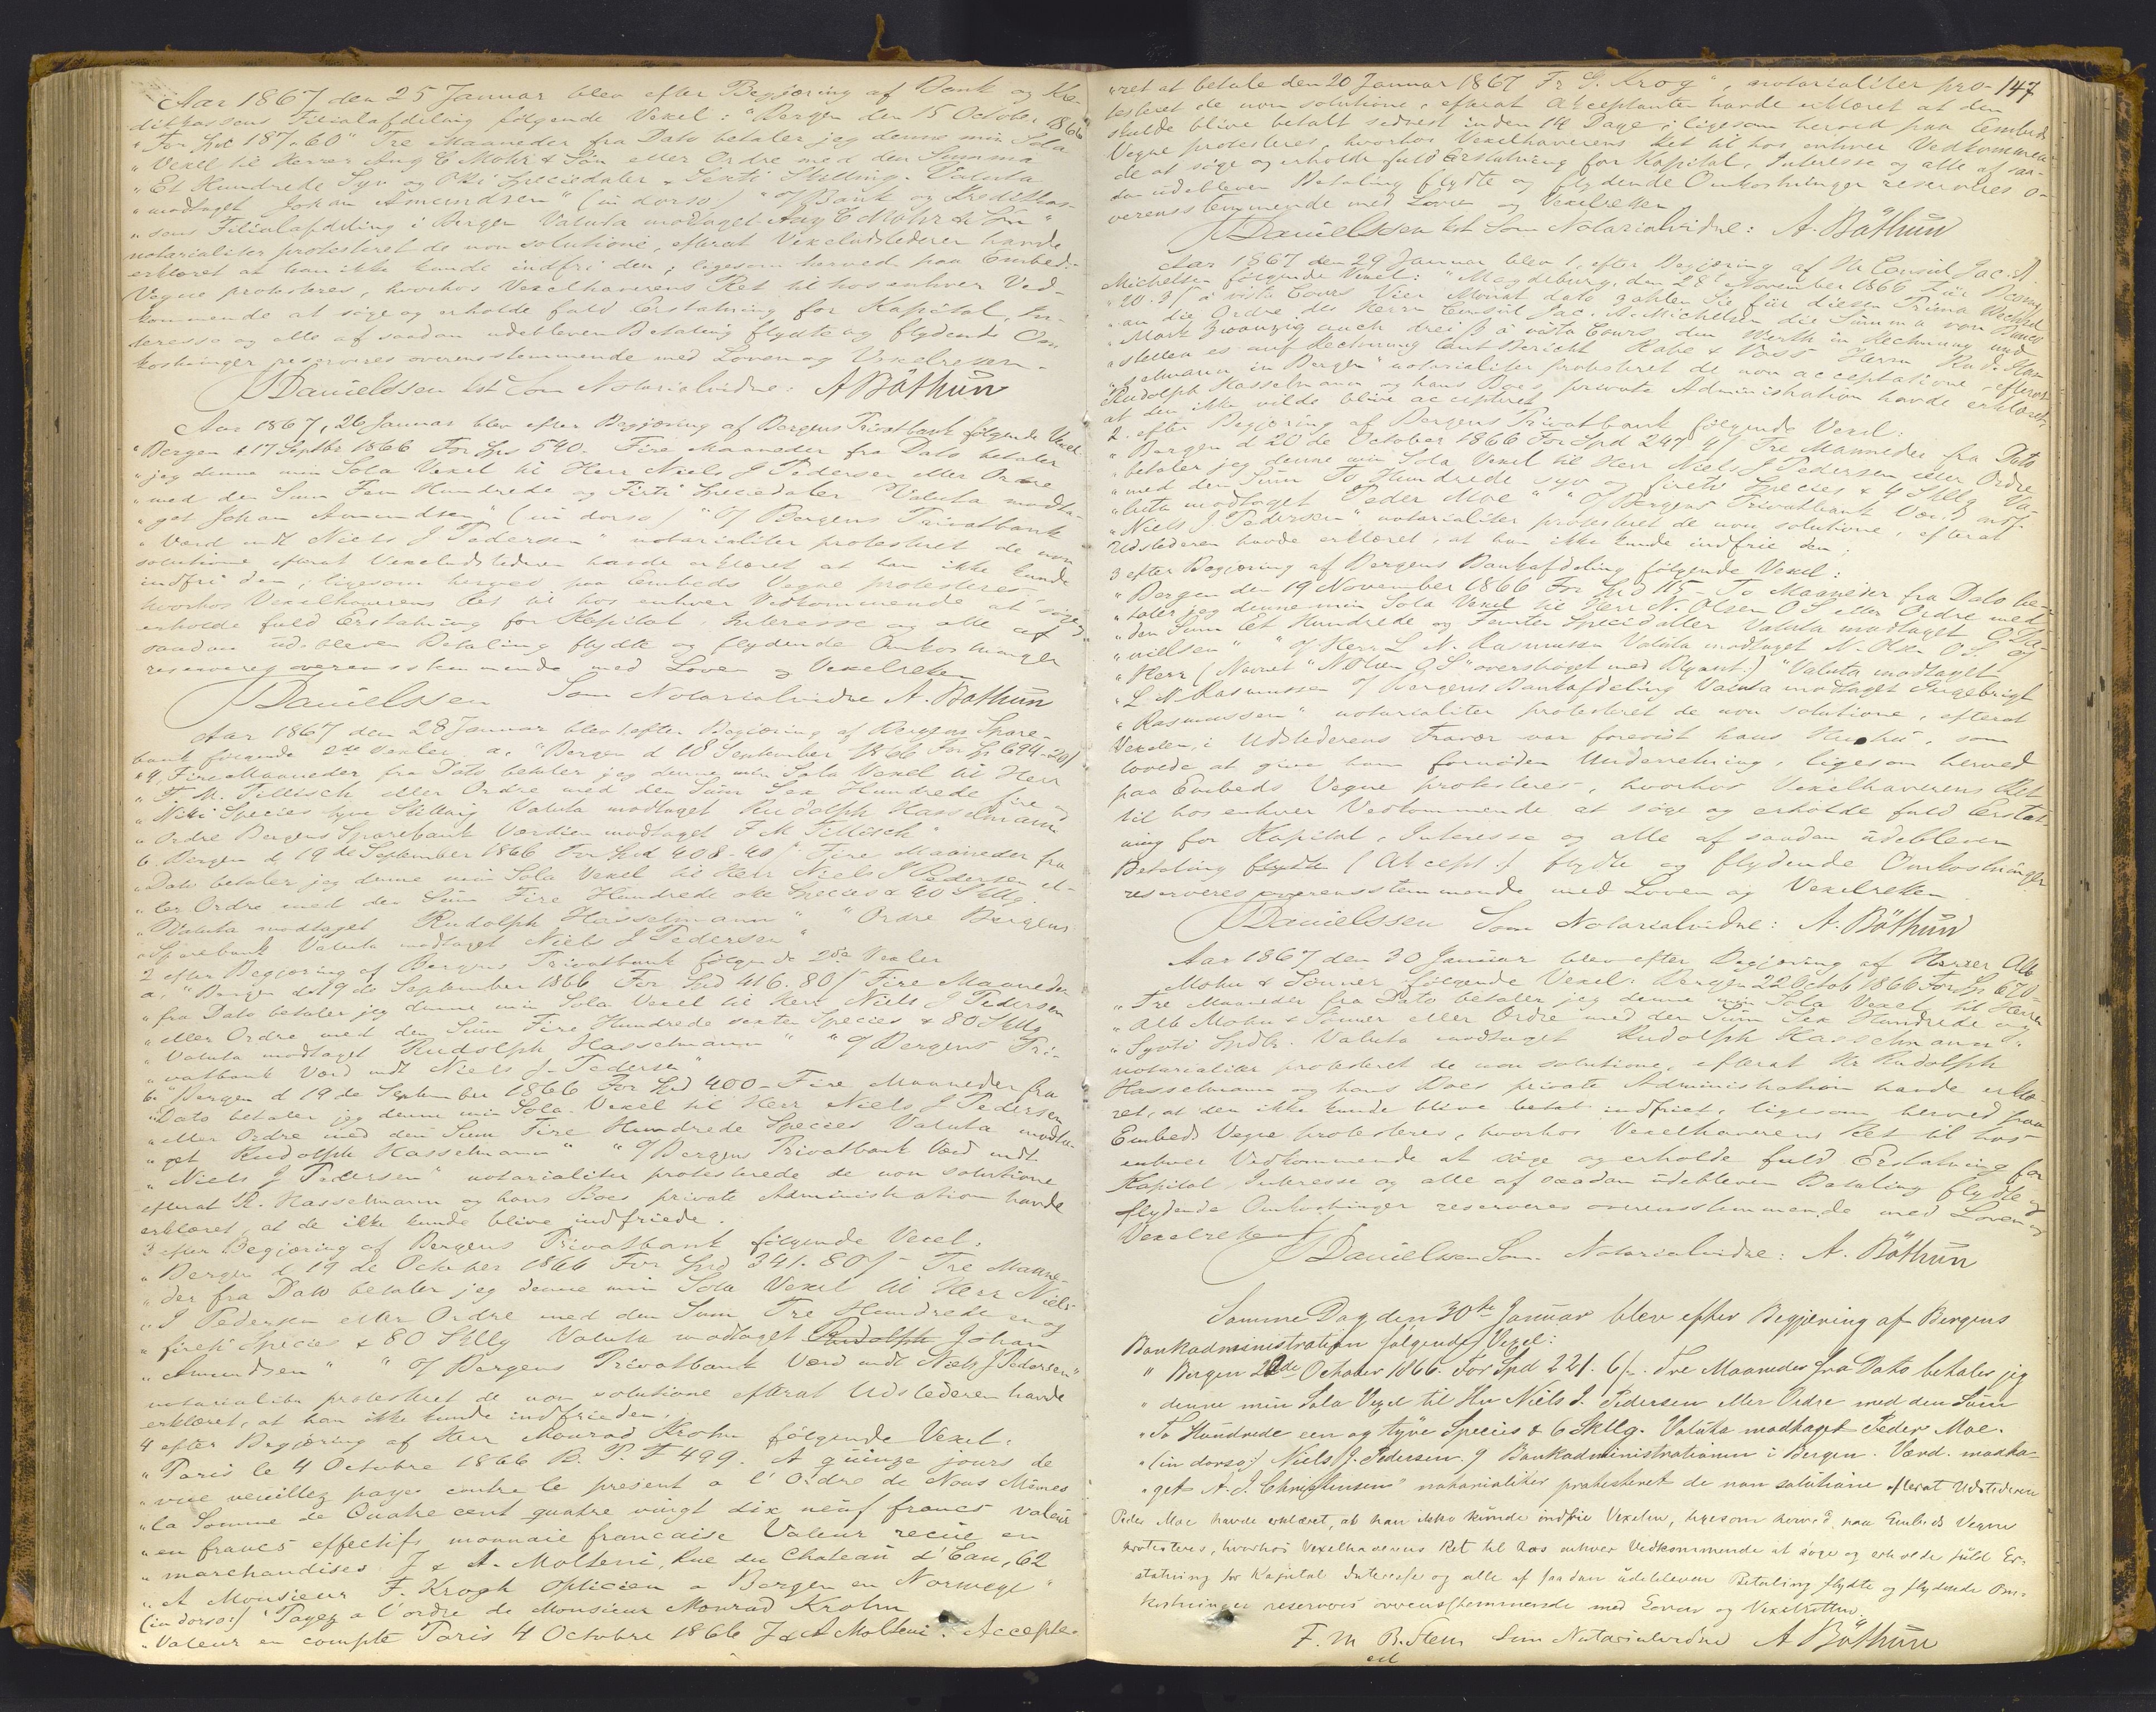 Aar 1867 den 25 Januar blev efter Begjæring af Bank og Kre-
ditkassens Filialafdeling følgende Vexel: "Bergen den 15 Octobr. 1866
"For Spd 187-60" Tre Maaneder fra Dato betaler jeg denne min Sola
"Vexel til Herrer Aug C Mohr & Søn eller Ordre med den Summa
"Et Hundrede Syv og Otti Speciedaler & Sexti Skilling. Valuta
"modtaget Johan Amundsen" (in dorso) "o/ Bank og Kreditkas-
"sens Filialafdeling i Bergen Valuta modtaget Aug C Mohr & Søn"
notarialiter protesteret de non solutione, efterat Vexeludstederen havde
erklæret at han ikke kunde indfri den; ligesom herved paa Embeds
Vegne protesteres, hvorhos Vexelhaverens Ret til hos enhver Ved-
kommende at søge og erholde fuld Erstatning for Kapital, In-
teresse og alle af saadan udebleven Betaling flydte og flydende Om
kostninger reserveres overensstemmende med Loven og Vexelretten.
Danielssen cst Som Notarialvidne: A Bøthun
Aar 1867, 26 Januar blev efter Begjæring af Bergens Privatbank følgende Vexel:
"Bergen d 17 Septbr 1866 For Sps 540. Fire Maaneder fra Dato betaler
"jeg denne min Sola Vexel til Herr Niels J Pedersen eller Ordre
"med den Sum Fem Hundrede og Firti Speciedaler Valuta modta-
"get Johan Amundsen" (in dorso) "o/ Bergens Privatbank
"Værd mdt Niels J Pedersen" notarialiter protesteret de non
solutione efterat Vexeludstederen havde erklæret at han ikke kunde
indfri den; ligesom herved paa Embeds Vegne protesteres.
hvorhos Vexelhaverens Ret til hos enhver Vedkommende at søge og
erholde fuld Erstatning for Kapital, Interesse og alle af
saadan udebleven Betaling flydte og flydende Omkostninger
reserveres overensstemmende med Loven og Vexelretten
Danielssen Som Notarialvidne A. Bøthun
Aar 1867 den 28 Januar blev 1, efter Begjæring af Bergens Spare-
bank følgende 2de Vexler a, "Bergen d 18 September 1866 For Sp 694-20 ſ
"4 Fire Maaneder fra Dato betaler jeg denne min Sola Vexel til Herr
"F M. Tillisch eller Ordre med den Sum Sex Hundrede fire og
"Niti Species tyve Skilling Valuta modtaget Rudolph Hasselmann
"Ordre Bergens Sparebank Værdien modtaget F M Tillisch"
b. Bergen d, 19 de September 1866 For Spd 408-40 ſ Fire Maaneder fra
"Dato betaler jeg denne min Sola Vexel til Herr Niels J Pedersen el-
"ler Ordre med den Sum Fire Hundrede otte Species & 40 Skllg.
"Valuta modtaget Rudolph Hasselmann" "Ordre Bergens
"Sparebank Valuta modtaget Niels J Pedersen"
2 efter Begjæring af Bergens Privatbank følgende 2de Vexler
a, "Bergen d 19 de September 1866 For Spd 416. 80 ſ Fire Maaneder
"fra Dato betaler jeg denne min Sola Vexel til Herr Niels J Pedersen
"eller Ordre med den Sum Fire Hundrede sexten Species & 80 Skllg
"Valuta modtaget Rudolph Hasselmann" "o/ Bergens Pri-
"vatbank Værd mdt Niels J. Pedersen"
b. "Bergen d 19 de September 1866 For Spd 400- Fire Maaneder fra
"Dato betaler jeg denne min Sola Vexel til Herr Niels J Pedersen
"eller Ordre med den Sum Fire Hundrede Species Valuta modta
"get Rudolph Hasselmann" "o/ Bergens Privatbank Værd mdt
"Niels J Pedersen" notarialiter protesterede de non solutione
efterat R. Hasselmann og hans Boes private Administration havde
erklæret, at de ikke kunde blive indfriede.
3 efter Begjæring af Bergens Privatbank følgende Vexel:
"Bergen d 19 de October 1866 For Spd 341. 80 ſ - Tre Maane-
"der fra Dato betaler jeg denne min Sola Vexel til Herr Niels
"J Pedersen eller Ordre med den Sum Tre Hundrede en og
"fireti Species & 80 Skllg Valuta modtaget Rudolph Johan
"Amundsen" "o/ Bergens Privatbank Værd mdt Niels J Pedersen"
notarialiter protesteret de non solutione efterat Udstederen havde
erklæret, at han ikke kunde indfrie den.
4 efter Begjæring af Herr Monrad Krohn følgende Vexel:
"Paris le 4 Octobre 1866 B. P. F 499. A quinze jours de
"vue veuillez payer contre le present a l'Ordre de Nous Mêmes
"la Somme de Quatre cent quatre vingt dix neuf francs valeur
"en francs effectifs monnaie francaise Valeur recue en
"marchandises J & A. Molteni, Rue du Chateau d'Eau, 62
"A Monsieur F. Krogh Opticien a Bergen en Norwege"
(in dorso) "Payez a l'ordre de Monsieur Monrad Krohn
"Valeur en compte Paris 4 Octobre 1866 J & A Molteni. Accepte-
147
"ret at betale den 20 Januar 1867 Fr G. Krog", notarialiter pro-
testeret de non solutione, efterat Acceptanten havde erklæret at den
skulde blive betalt sednest inden 14 Dage; ligesom herved paa Embeds
Vegne protesteres, hvorhos Vexelhaverens Ret til hos enhver Vedkommen-
de at søge og erholde fuld Erstatning for Kapital, Interesse og alle af saa-
dan udebleven Betaling flydte og flydende Omkostninger reserveres o-
verensstemmende med Loven og Vexelretten
Danielssen cst Som Notarialvidne: A. Bøthun
Aar 1867 den 29 Januar blev 1, efter Begjæring af Hr Consul Jac. A.
Michelsen følgende Vexel: "Magdeburg, den 28 November 1866 Für Banco
"20. 3 ſ à vista Cours Vier Monat dato zahlen Sie für diesen Prima Wechsel
"an die Ordre des Herrn Consul Jac. A. Michelsen die Summa von Banco
"Mark Zwanzig auch drei ß à vista Cours, den Werth in Rechnung und
"stellen es auf Rechnung laut Bericht Rabe & Voss Herrn Rud. Has
"selmann in Bergen" notarialiter protesteret de non acceptatione - efterat
Rudolph Hasselmann og hans Boes private Administration havde erklæret,
at den ikke vilde blive accepteret
2. efter Begjæring af Bergens Privatbank følgende Vexel:
"Bergen d 20 de October 1866 For Spd 247 4 ſ Tre Maaneder fra Dato
"betaler jeg denne min Sola Vexel til Herr Niels J Pedersen eller Ordre
"med den Sum To Hundrede syv og fireti Species & 4 Skllg Va-
"luta modtaget Peder Moe" "o/ Bergens Privatbank Værd mdt
"Niels J Pedersen" notarialiter protesteret de non solutione, efterat
Udstederen havde erklæret, at han ikke kunde indfrie den;
3 efter Begjæring af Bergens Bankafdeling følgende Vexel:
"Bergen den 19 November 1866 For Spd 115- To Maaneder fra Dato be-
"taler jeg denne min Sola Vexel til Herr N. Olsen O S eller Ordre med
"den Sum Et Hundrede og Femten Speciedaller Valuta modtaget O Da-
"nielsen" "o/ Herr L N. Rasmussen Valuta modtaget N. Olsen O S. og
"Herr (Navnet "N Olsen O S" overstrøget med Blyant.) "Valuta modtaget
"L N Rasmussen o/ Bergens Bankafdeling Valuta modtaget Ingebrigt
"Rasmussen" notarialiter protesteret de non solutione, efterat
Vexelen, i Udstederens Fravær var forevist hans Hustru, som
lovede at give ham fornøden Underretning, ligesom herved
paa Embeds Vegne protesteres, hvorhos Vexelhaverens Ret
til hos enhver Vedkommende at søge og erholde fuld Erstat-
ning for Kapital, Interesse og alle af saadan udebleven
Betaling flydte (Accept.) flydte og flydende Omkostninger
reserveres overensstemmende med Loven og Vexelretten
Danielssen Som Notarialvidne: A. Bøthun
Aar 1867 den 30 Januar blev efter Begjæring af Herrer Alb
Mohn & Sønner følgende Vexel: Bergen 22 Octob 1866 For Sp 670-
"Tre Maaneder fra Dato betaler jeg denne min Sola Vexel til Herrer
"Alb Mohn & Sønner eller Ordre med den Sum Sex Hundrede og
"Sytti Spdlr. Valuta modtaget Rudolph Hasselmann"
notarialiter protesteret de non solutione, efterat Hr Rudolph
Hasselmann og hans Boes private Administration havde erklæ-
ret, at den ikke kunde blive betat indfriet, ligesom herved paa
Embeds Vegne protesteres, hvorhos Vexelhaverens Ret til hos
enhver Vedkommende at søge og erholde fuld Erstatning for
Kapital Interesse og alle af saadan udebleven Betaling flydte og
flydende Omkostninger reserveres overensstemmende med Loven og
Vexelretten
Danielssen Som Notarialvidne: A. Bøthun
Samme Dag den 30te Januar blev efter Begjæring af Bergens
Bankadministration følgende Vexel:
"Bergen 22de October 1866. For Spd 221. 6 ſ. Tre Maaneder fra Dato betaler jeg
"denne min Sola Vexel til Herr Niels J. Pedersen eller Ordre med den Sum
"To Hundrede een og tyve Species & 6 Skllg. Valuta modtaget Peder Moe.
"(in dorso) Niels J. Pedersen. o/ Bankadministrationen i Bergen. Værd. modta-
"get N. J. Christensen" notarialiter protesteret de non solutione efterat Udstederen
Peder Moe havde erklæret, at han ikke kunde indfrie Vexelen, ligesom herved paa Embeds Vegne
protesteres, hvorhos Vexelhaverens Ret til hos enhver Vedkommende at søge og erholde fuld Er-
statning for Kapital Interesse og alle af saadan udebleven Betaling flydte og flydende Om-
kostninger reserveres overensstemmende med Loven og Vexelretten.
F. M Som Notarialvidne A Bøthun